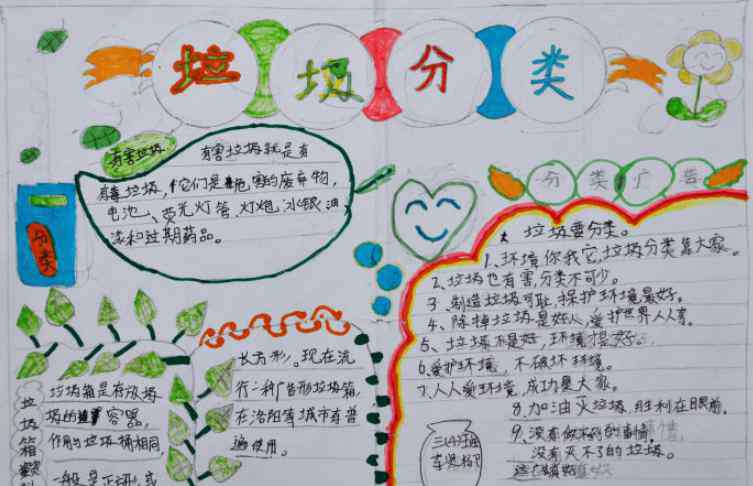 垃圾分类
有害垃圾
有害垃圾就是有
有毒垃圾，它们是 危害的废弃物，
电池、荧光灯管、灯炮、水银油
漆和过期药品。
分类
分类广告
垃圾要分类。
1、环境你我它，垃圾分类靠大家。
2、垃圾也有害，分类不可少。
3、制造垃圾可耻，保护环境最好。
4、除掉垃圾是好人，爱护世界人人享。
5、垃圾不是好，环境 好。
6、爱护环境，不破坏环境。
7、人人爱环境，成功是大家。
8、加油灭垃圾，胜利在眼前。
9、没有做不好的事情，
没有灭不了的垃圾。
垃圾箱
垃圾箱是存放垃
圾的 容器，
作用与垃圾桶相同，
一般是正方形或
长方形。现在流
行一种广告形垃圾箱，
在洛阳等城市有普
遍使用。
三(4)班